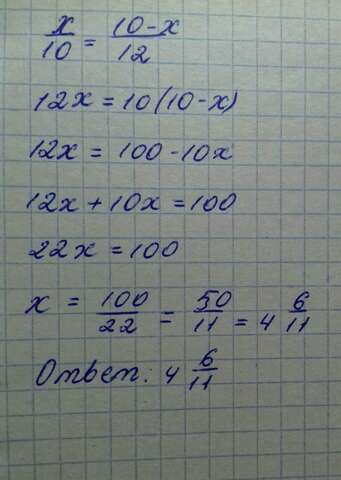 x/10 = 10-x/12
12x = 10(10-x)
12x = 100-10x
12x+10x=100
22x=100
x = 100/22 = 50/11 = 4 6/11
Ответ: 4 6/11